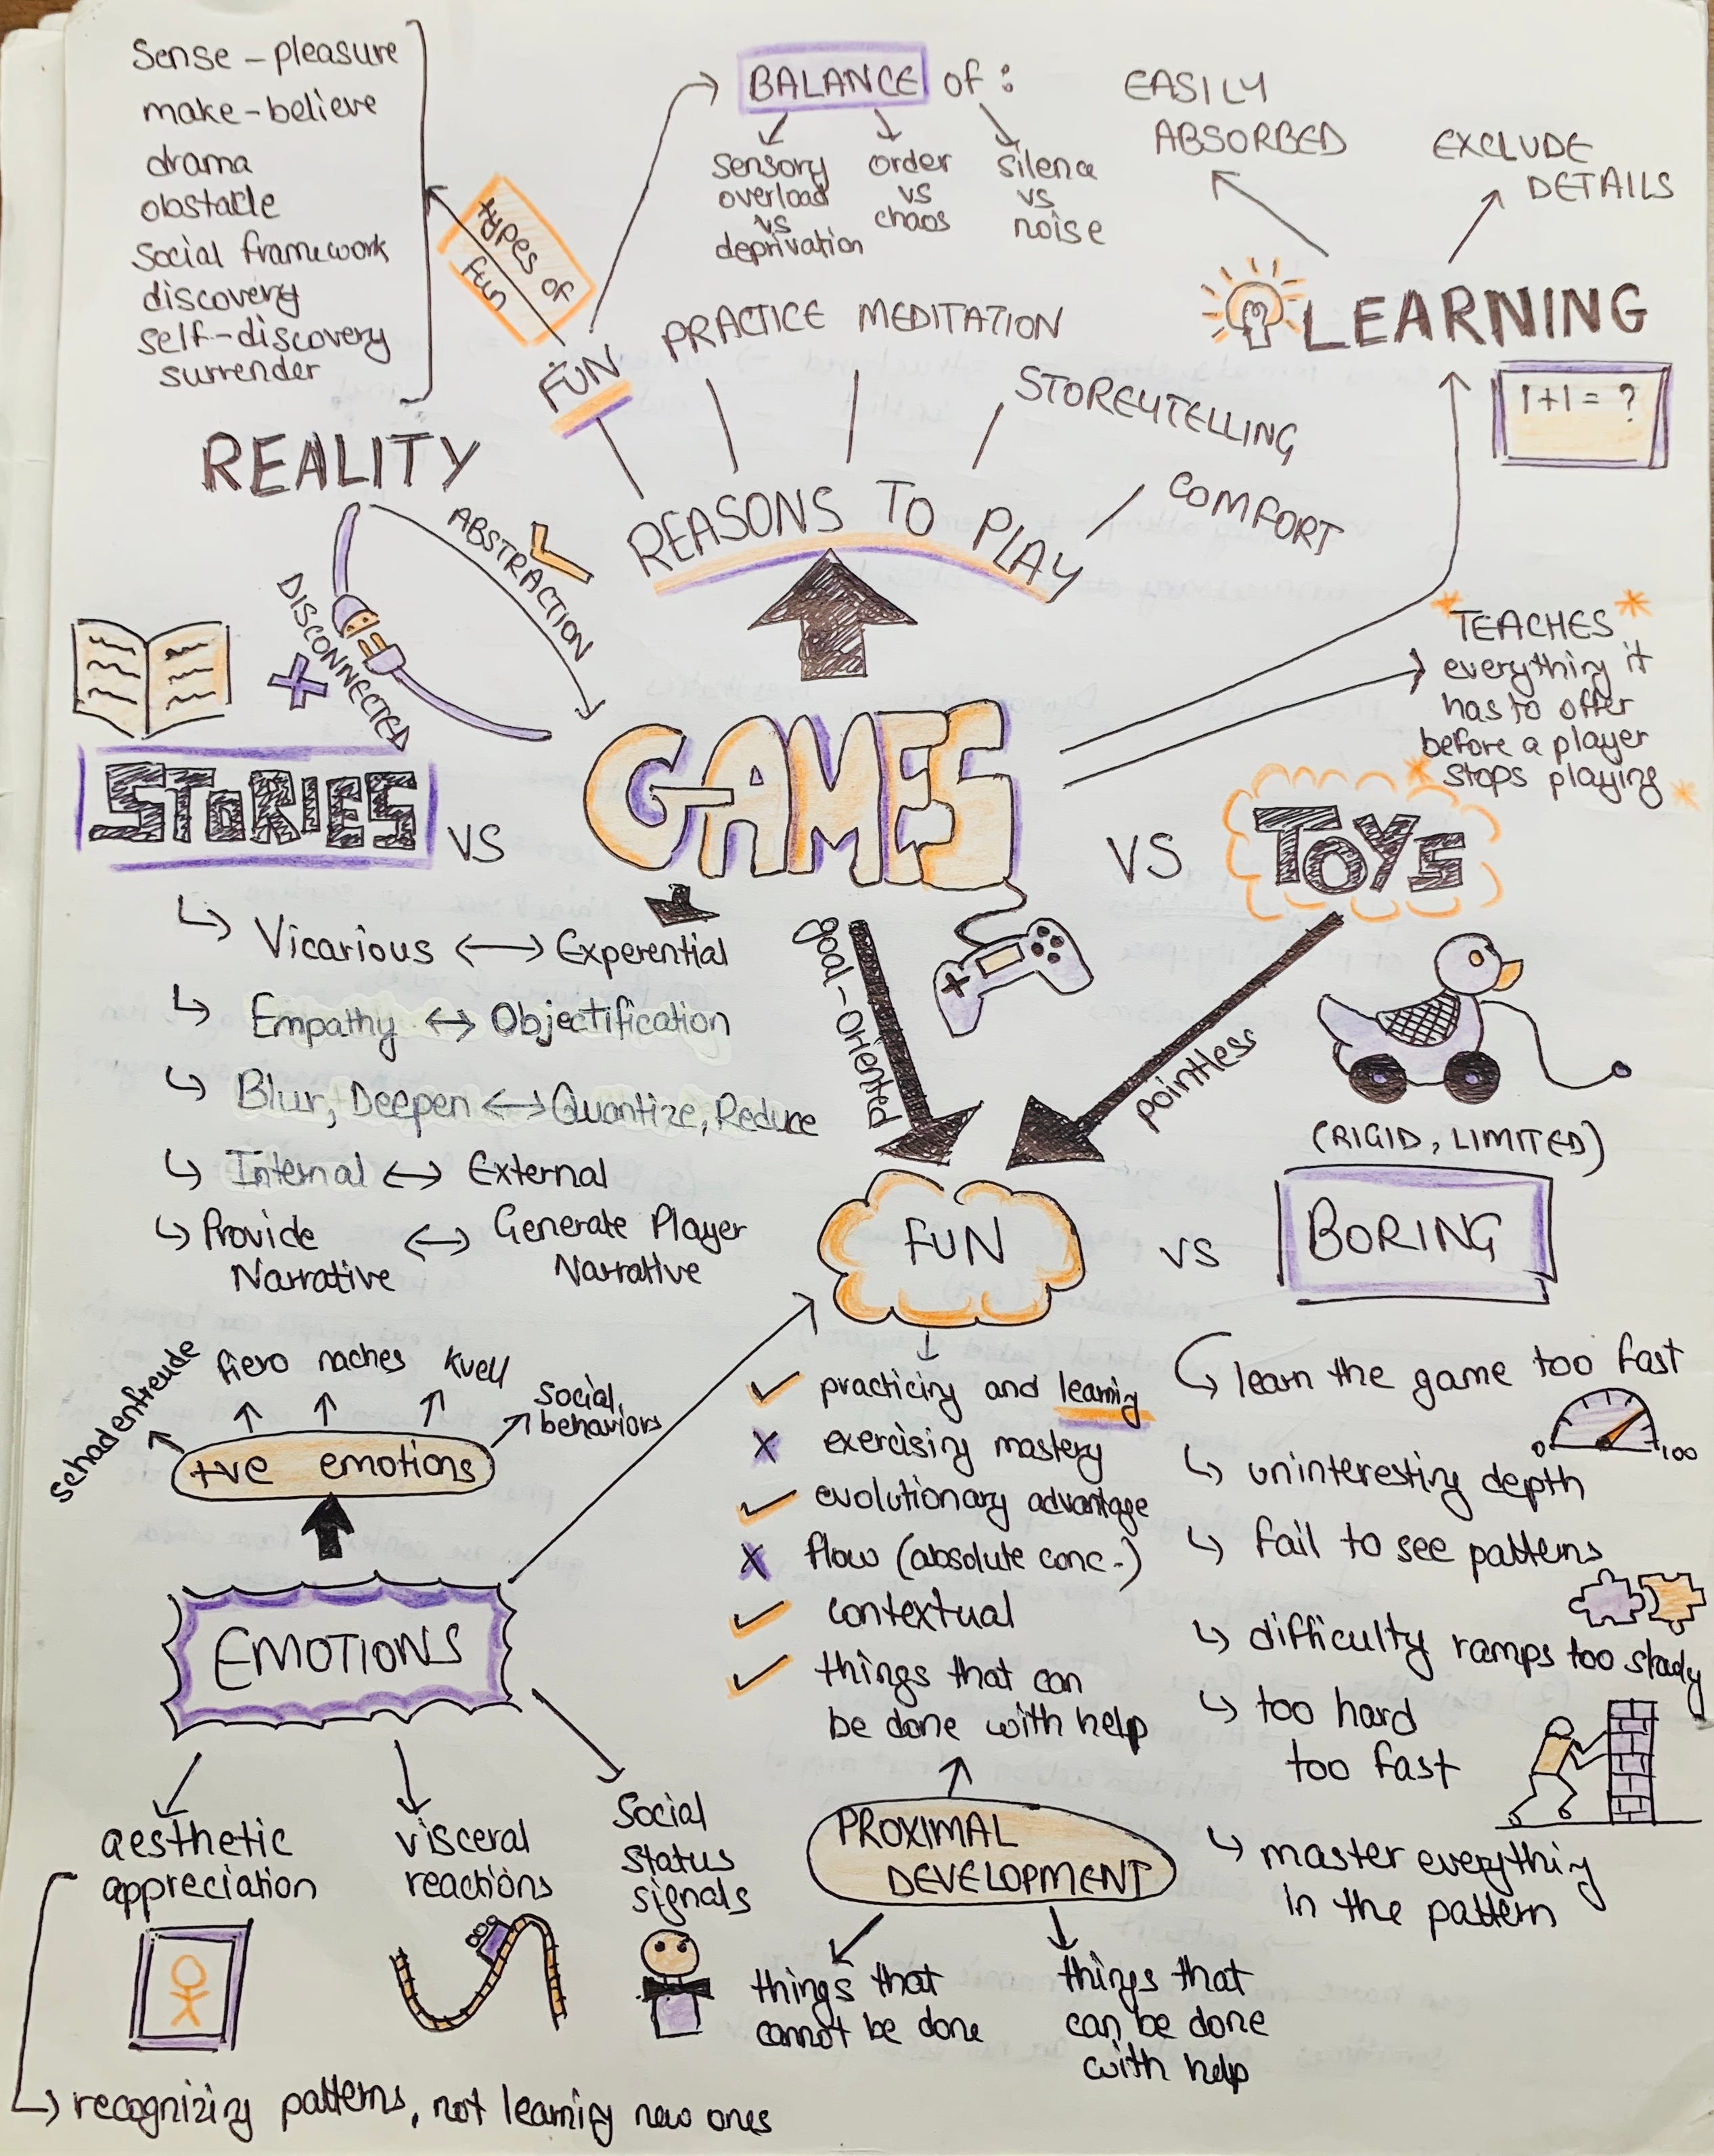 Sense - pleasure
make-believe
drama
obstacle
Social framework
discovery
self-discovery
surrender
types of
fun
BALANCE of :
sensory
overload
vs
deprivation
order
vs
chaos
silence
vs
noise
EASILY
ABSORBED
EXCLUDE
DETAILS
LEARNING
1+1 = ?
FUN
PRACTICE
MEDITATION
STOREYTELLING
COMFORT
REASONS TO PLAY
REALITY
ABSTRACTION
DISCONNECTED
TEACHES
everything it
has to offer
before a player
stops playing
STORIES
VS
GAMES
VS
TOYS
Vicarious ↔ Experential
Empathy ↔ Objectification
Blur, Deepen ↔ Quantize, Reduce
Internal ↔ External
Provide
Narrative
↔
Generate Player
Narrative
goal-oriented
pointless
(RIGID, LIMITED)
FUN
VS
BORING
practicing and learning
exercising mastery
evolutionary advantage
flow (absolute conc.)
contextual
things that can
be done with help
learn the game too fast
0
100
uninteresting depth
fail to see patterns
difficulty ramps too stady
too hard
too fast
master everything
in the pattern
schadenfreude
fiero
naches
kvell
social
behaviors
+ve emotions
EMOTIONS
aesthetic
appreciation
visceral
reactions
Social
status
signals
recognizing patterns, not learning new ones
PROXIMAL
DEVELOPMENT
things that
cannot be done
things that
can be done
with help